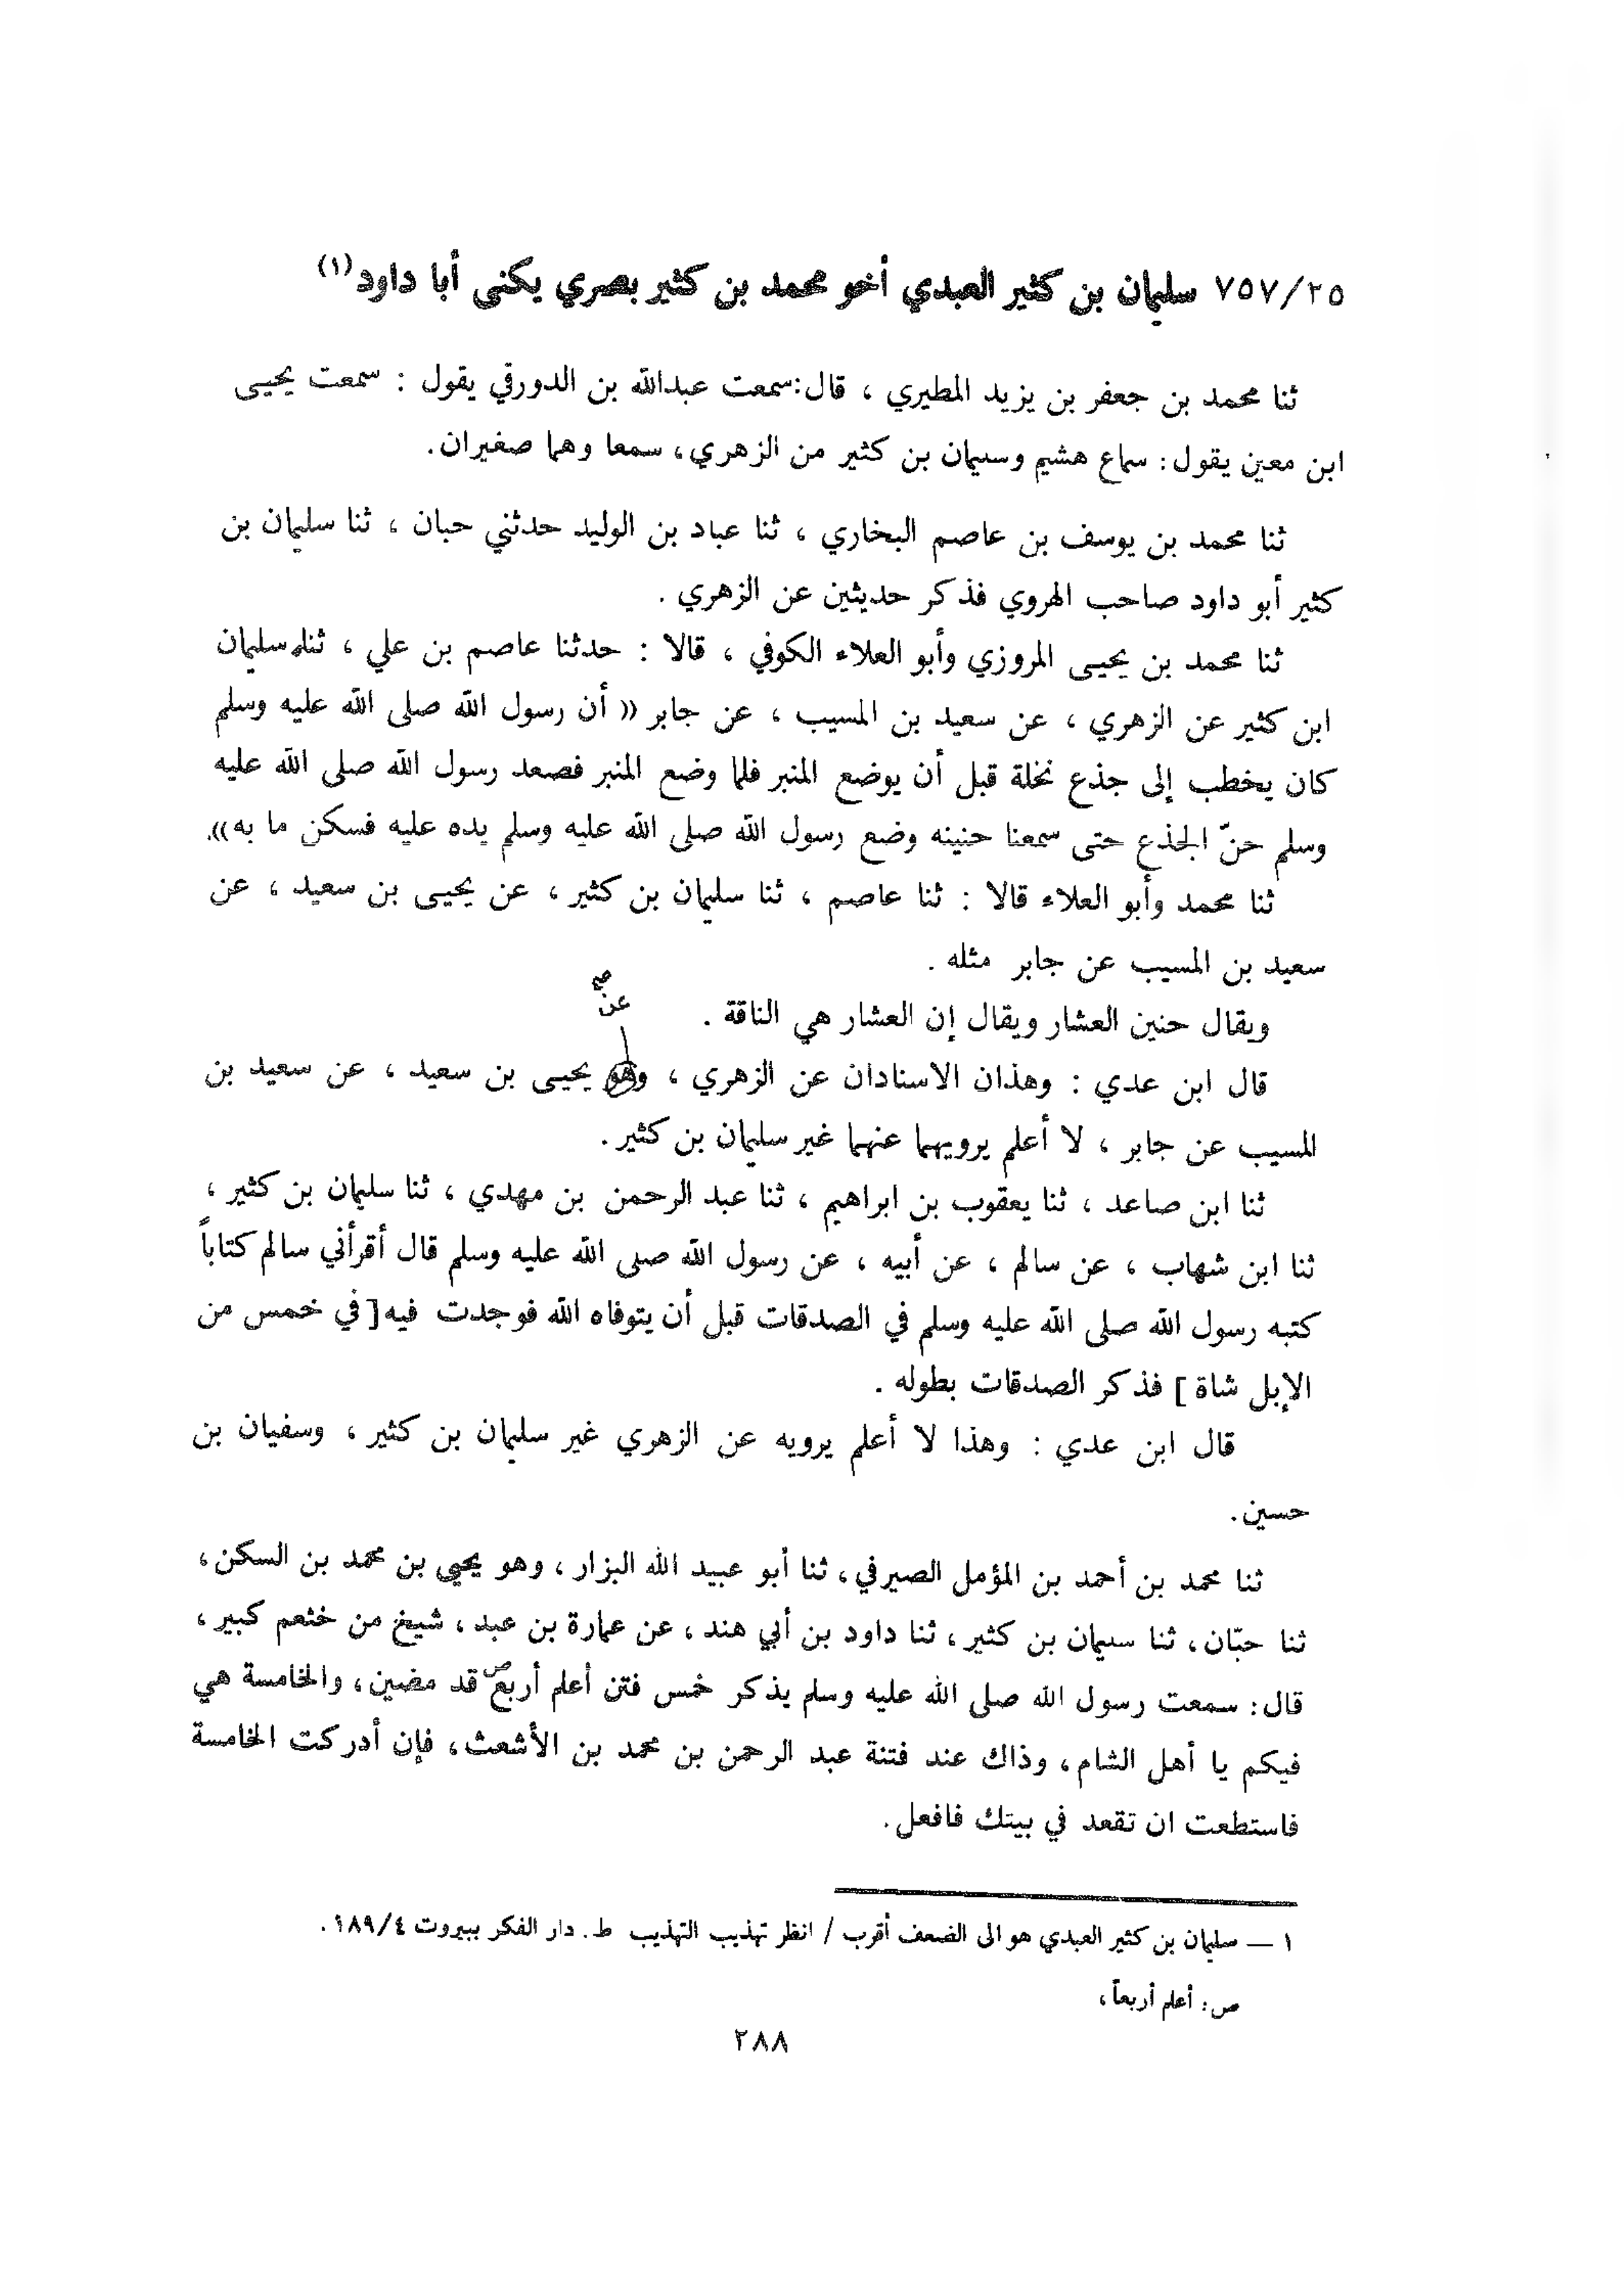 ٧٥٧/٢٥ سليمان بن كثير العبدي أخو محمد بن كثير بصري يكنى أبا داود(١)
ثنا محمد بن جعفر بن يزيد المطيري ، قال:سمعت عبدالله بن الدورقي يقول : سمعت يحيى
ابن معين يقول: سماع هشيم وسليمان بن كثير من الزهري، سمعا وهما صغيران.
ثنا محمد بن يوسف بن عاصم البخاري ، ثنا عباد بن الوليد حدثني حبان ، ثنا سليمان بن
كثير أبو داود صاحب الهروي فذكر حديثين عن الزهري .
ثنا محمد بن يحيى المروزي وأبو العلاء الكوفي ، قالا : حدثنا عاصم بن علي ، ثنا سليمان
ابن كثير عن الزهري ، عن سعيد بن المسيب ، عن جابر (( أن رسول الله صلى الله عليه وسلم
كان يخطب إلى جذع نخلة قبل أن يوضع المنبر فلما وضع المنبر فصعد رسول الله صلى الله عليه
وسلم حنّ الجذع حتى سمعنا حنينه وضع رسول الله صلى الله عليه وسلم يده عليه فسكن ما به)).
ثنا محمد وأبو العلاء قالا : ثنا عاصم ، ثنا سليمان بن كثير ، عن يحيى بن سعيد ، عن
سعيد بن المسيب عن جابر مثله .
صح
عن
ويقال حنين العشار ويقال إن العشار هي الناقة .
قال ابن عدي : وهذان الاسنادان عن الزهري ، وهو يحيى بن سعيد ، عن سعيد بن
المسيب عن جابر ، لا أعلم يرويهما عنهما غير سليمان بن كثير.
ثنا ابن صاعد ، ثنا يعقوب بن ابراهيم ، ثنا عبد الرحمن بن مهدي ، ثنا سليمان بن كثير ،
ثنا ابن شهاب ، عن سالم ، عن أبيه ، عن رسول الله صلى الله عليه وسلم قال أقرأني سالم كتاباً
كتبه رسول الله صلى الله عليه وسلم في الصدقات قبل أن يتوفاه الله فوجدت فيه[في خمس من
الإبل شاة ] فذكر الصدقات بطوله .
قال ابن عدي : وهذا لا أعلم يرويه عن الزهري غير سليمان بن كثير ، وسفيان بن
حسين.
ثنا محمد بن أحمد بن المؤمل الصيرفي، ثنا أبو عبيد الله البزار ، وهو يحيى بن محمد بن السكن،
ثنا حبّان، ثنا سليمان بن كثير ، ثنا داود بن أبي هند ، عن عمارة بن عبد ، شيخ من خثعم كبير ،
قال: سمعت رسول الله صلى الله عليه وسلم يذكر خمس فتن أعلم أربع ص قد مضين، والخامسة هي
فيكم يا أهل الشام، وذاك عند فتنة عبد الرحمن بن محمد بن الأشعث، فإن أدركت الخامسة
فاستطعت ان تقعد في بيتك فافعل.
١ — سليمان بن كثير العبدي هو الى الضعف أقرب / انظر تهذيب التهذيب ط. دار الفكر ببيروت ١٨٩/٤ .
ص: أعلم أربعاً،
٢٨٨